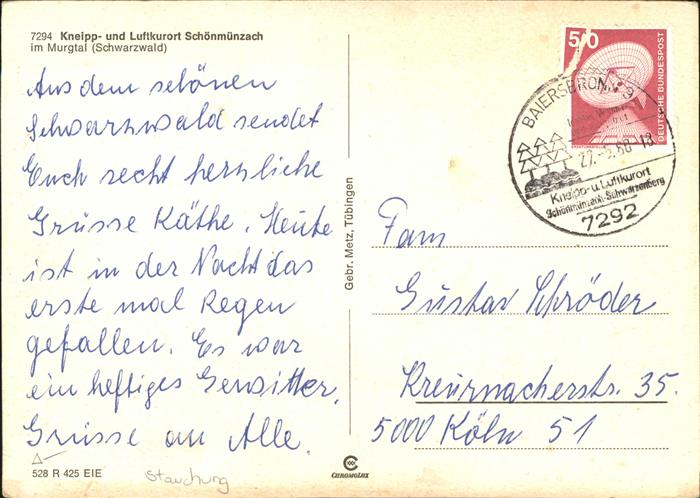 7294 Kneipp- und Luftkurort Schönmünzach
im Murgtal (Schwarzwald)
Aus dem schönen
Schwarzwald sendet
Euch recht herzliche
Grüsse Käthe. Heute
ist in der Nacht das
erste mal Regen
gefallen. Es war
ein heftiges Gewitter.
Grüsse an Alle.
528 R 425 EIE
Stauchung
Gebr. Metz, Tübingen
CHROMOLUX
50
DEUTSCHE BUNDESPOST
BAIERSBRONN 9
Kneipp- u. Luftkurort
Schönmünzach-Schwarzenberg
7292
Fam
Gustav Schröder
Kreuznacherstr. 35.
5000 Köln 51